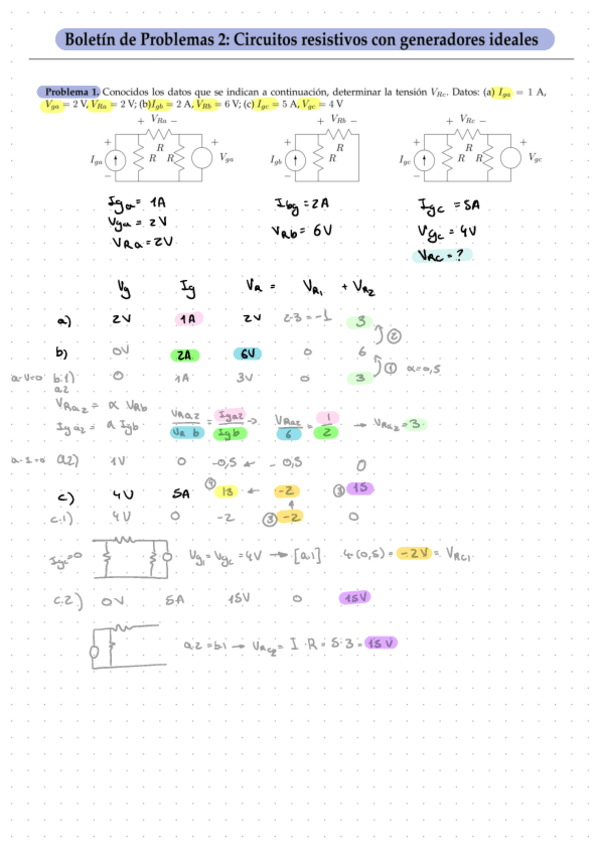 Boletín de Problemas 2: Circuitos resistivos con generadores ideales
Problema 1. Conocidos los datos que se indican a continuación, determinar la tensión V_Rc. Datos: (a) I_ga = 1 A,
V_ga = 2 V, V_Ra = 2 V; (b) I_gb = 2 A, V_Rb = 6 V; (c) I_gc = 5 A, V_gc = 4 V
+ V_Ra − + V_Rb − + V_Rc −
+ R + + R + R +
I_ga R R V_ga I_gb R I_gc R R V_gc
− − −
Iga = 1A Ibg = 2A Igc = 5A
Vga = 2V VRb = 6V Vgc = 4V
VRa = 2V VRc = ?
Vg Ig VR = VR1 + VR2
a) 2V 1A 2V 2-3 = -1 3
②
b) 0V 2A 6V 0 6
① α=0,5
a-V=0 b.1) 0 1A 3V 0 3
a2
VRa2 = α VRb
Iga2 = α Igb VRa2/VRb = Iga2/Igb → VRa2/6 = 1/2 → VRa2 = 3
a-I=0 a2) 1V 0 -0,5 ← -0,5 0
c) 4V 5A ④ 13 ← -2 ③ 15
c.1) 4V 0 -2 ③ -2 0
Igc=0 Vg1 = Vgc = 4V → [a.1] 4·(0,5) = -2V = VRc1
c.2) 0V 5A 15V 0 15V
a.2 = b.1 → VRc2 = I·R = 5·3 = 15V